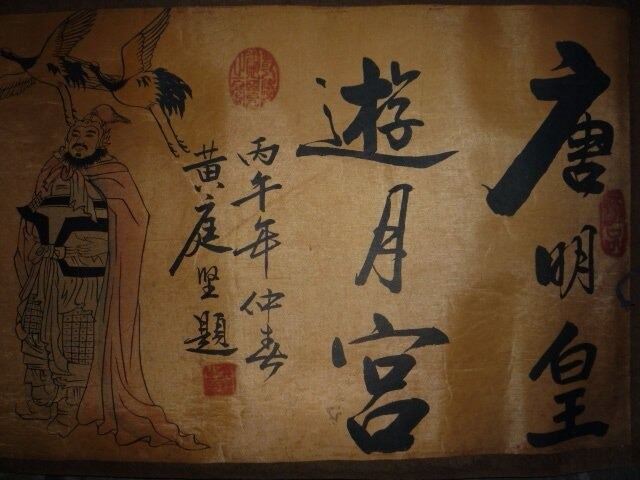 唐明皇
遊月宮
丙午年仲春
黄庭坚題